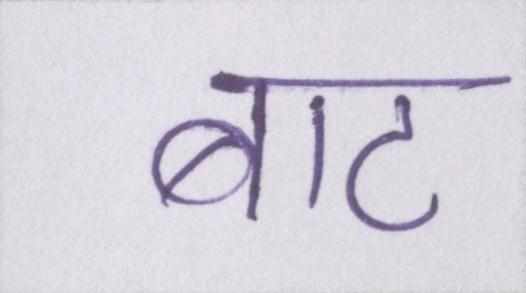 बाट